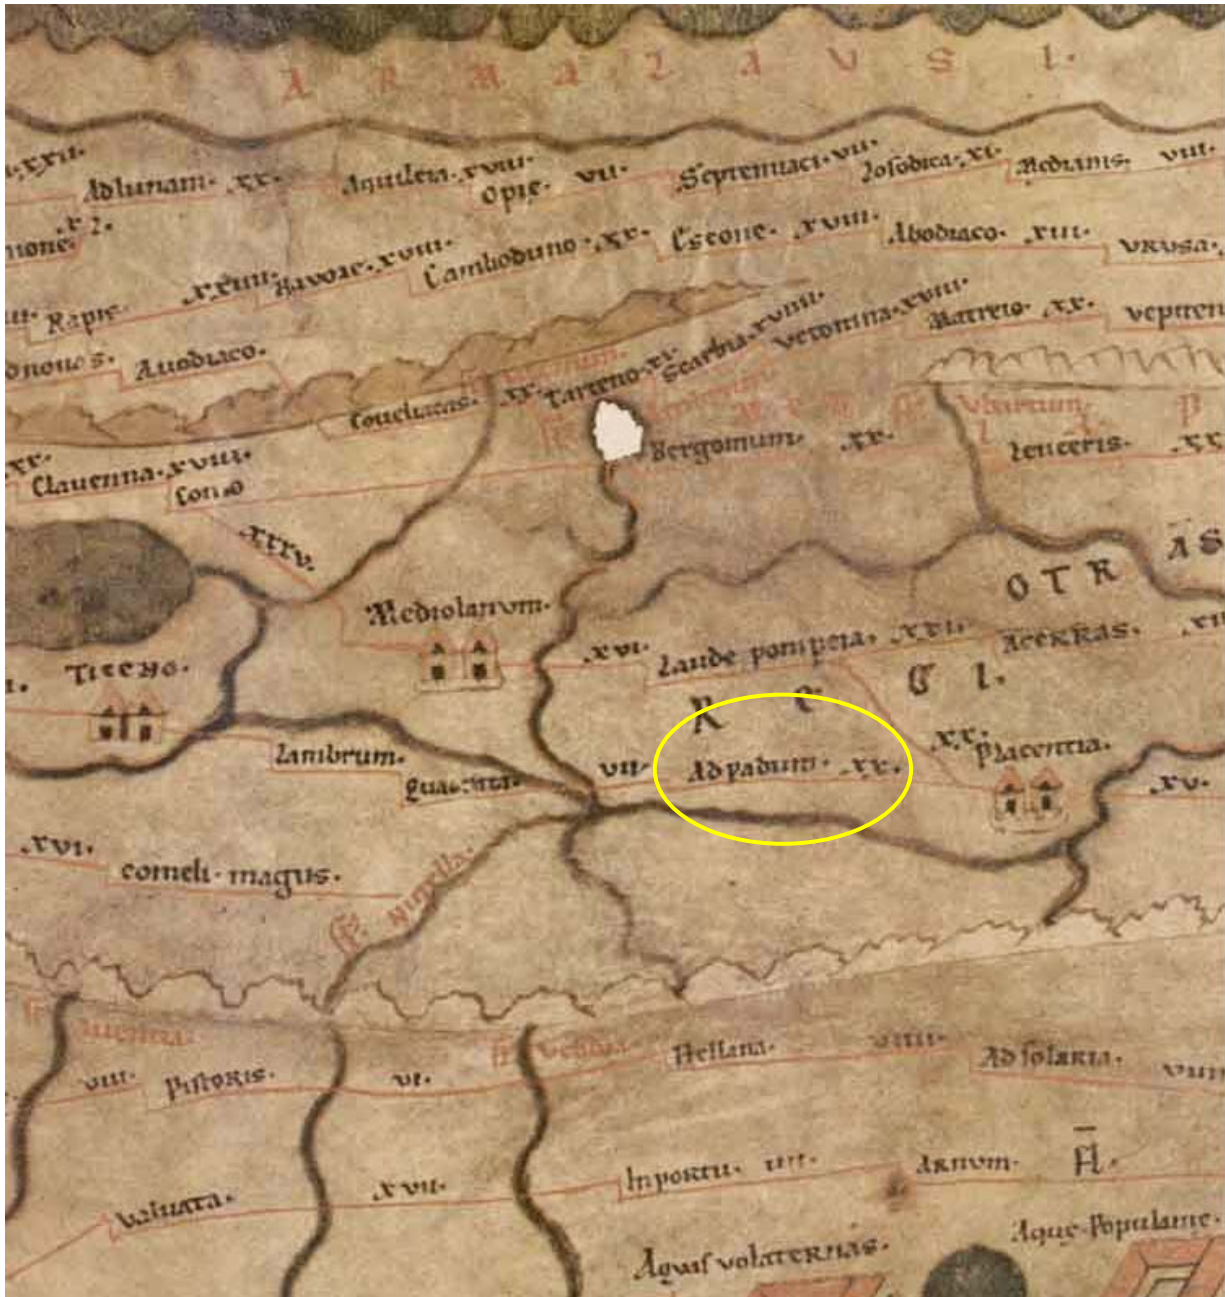 A R M A L A V S I.
xxii.
Adlunam. xx.
Aquileia. xviii.
Opie. vii.
Septemiaci. vii.
Losodica. xi.
Medianis. viii.
Rapis. xxiii.
Navoae. xviii.
Camboduno. xx.
Escone. xviii.
Abodiaco. xiii.
vrusa.
Avodiaco.
Coveliacas. xx.
Tarteno. xi.
Scarbia. xviiii.
Vetonina. xviii.
Matreio. xx.
vepiten
xx.
Clavenna. xviii.
Como
Bergomum. xx.
Leuceris. xx
xxxv.
OTRAS
Mediolanum.
xvi.
Laude pompeia. xxi.
Acerras. xii
Ticeno.
R E G I.
Lambrum.
vii.
Adpadum. xx.
xx.
Placentia.
xv.
xvi.
comeli. magus.
viii. Pistoris. vi.
Hellana. viiii.
Ad solaria. viiii
valuata. xvii.
Inportu. iiii.
Arnum. FL.
Aquis volaternas.
Aque. Populanie.